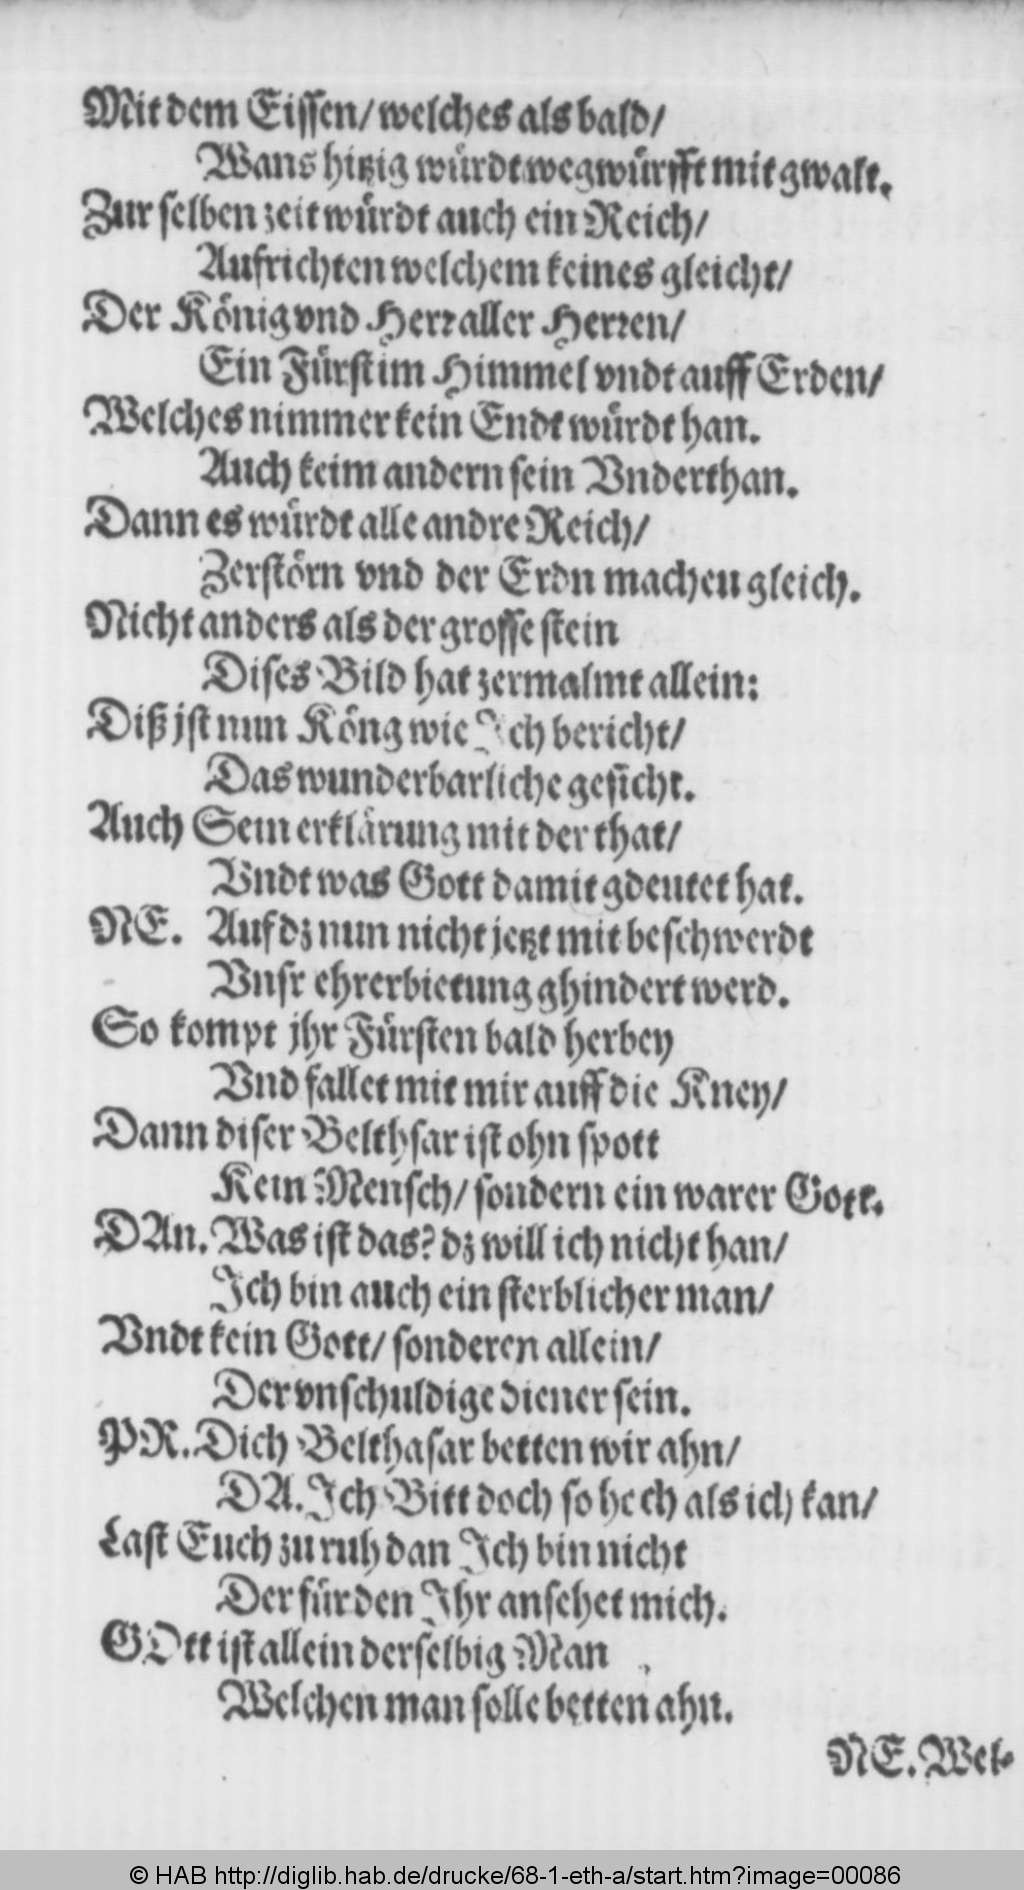 Mit dem Eissen/ welches als bald/
Wans hitzig würdt wegwürfft mit gwalt.
Zur selben zeit würdt auch ein Reich/
Aufrichten welchem keines gleicht/
Der König vnd Herr aller Herren/
Ein Fürst im Himmel vndt auff Erden/
Welches nimmer kein Endt würdt han.
Auch keim andern sein Vnderthan.
Dann es würdt alle andre Reich/
Zerstörn vnd der Erdn machen gleich.
Nicht anders als der grosse stein
Dises Bild hat zermalmt allein:
Diß jst nun Köng wie Ich bericht/
Das wunderbarliche gesicht.
Auch Sein erklärung mit der that/
Vndt was Gott damit gdeutet hat.
NE. Auf dz nun nicht jetzt mit beschwerdt
Vnsr ehrerbietung ghindert werd.
So kompt jhr Fürsten bald herbey
Vnd fallet mit mir auff die Kney/
Dann diser Belthsar ist ohn spott
Kein Mensch/ sondern ein warer Gott.
DAn. Was ist das? dz will ich nicht han/
Ich bin auch ein sterblicher man/
Vndt kein Gott/ sonderen allein/
Der vnschuldige diener sein.
PR. Dich Belthasar betten wir ahn/
DA. Ich Bitt doch so hoch als ich kan/
Last Euch zu ruh dan Ich bin nicht
Der für den Ihr ansehet mich.
GOtt ist allein derselbig Man
Welchen man solle betten ahn.
NE. Wel-
© HAB http://diglib.hab.de/drucke/68-1-eth-a/start.htm?image=00086